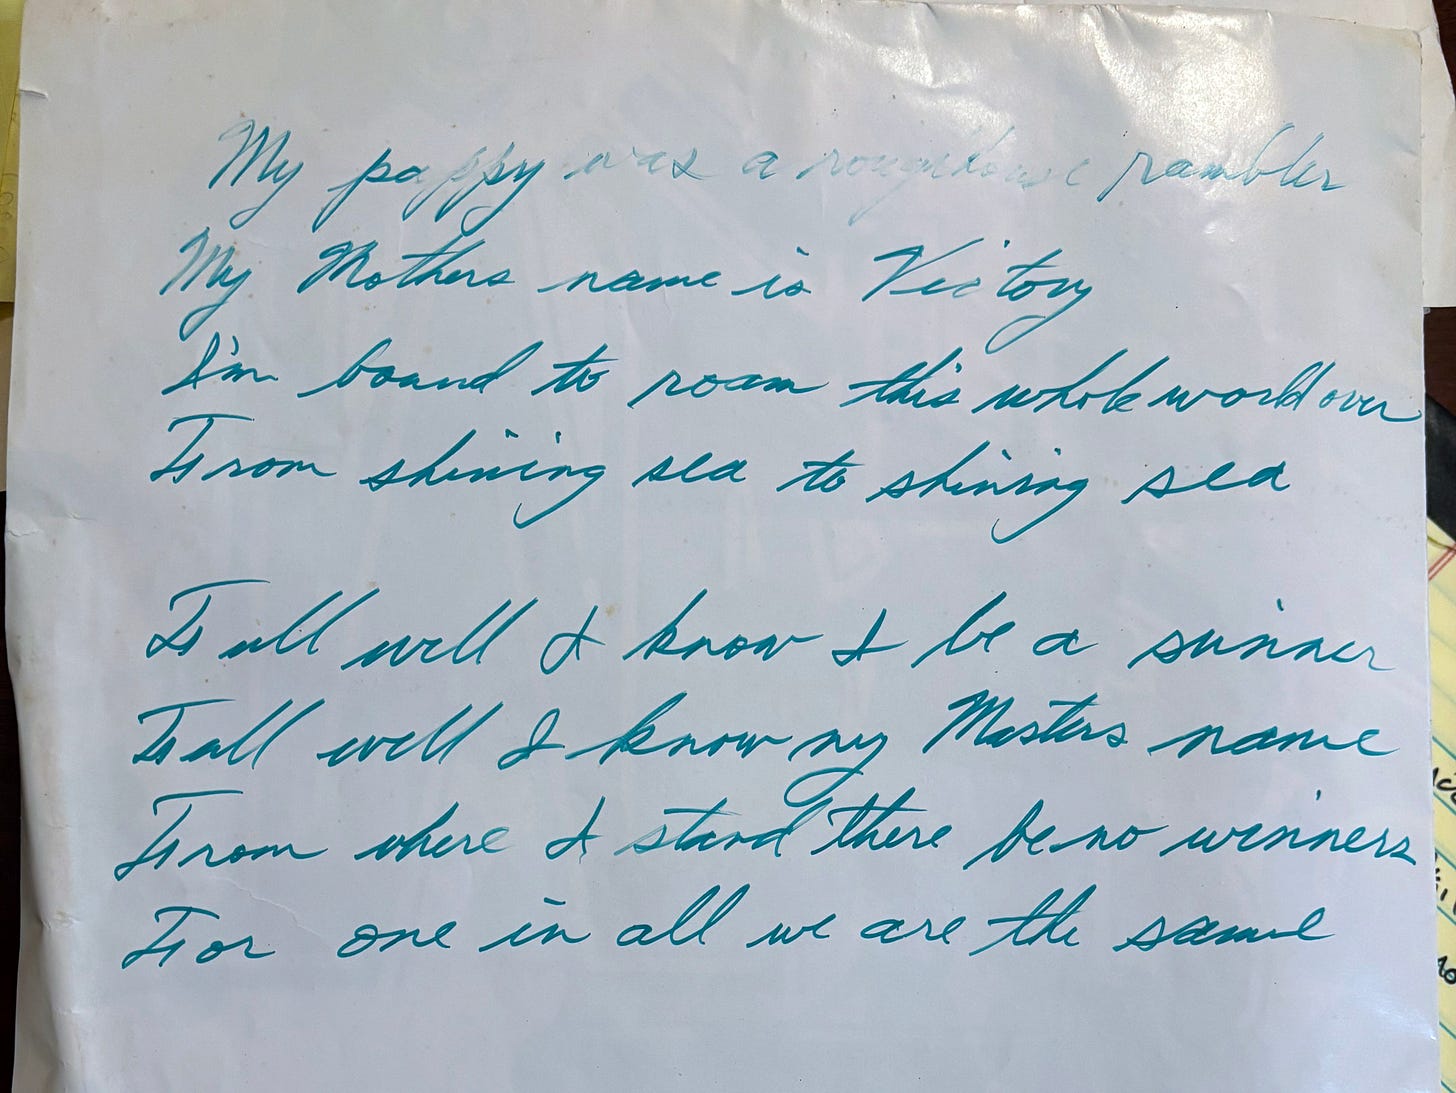 My pappy was a roughouse rambler
My Mothers name is Victory
I'm bound to roam this whole world over
From shining sea to shining sea
Full well I know I be a sinner
Full well I know my Masters name
From where I stand there be no winners
For one in all we are the same